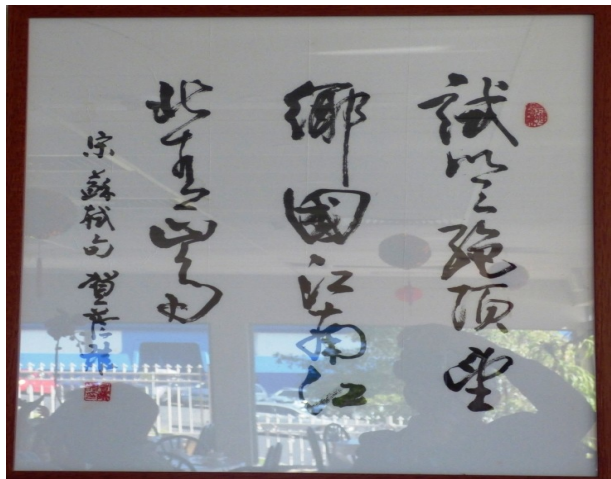 試登絕頂望
鄉國江南江
北青山多
宋蘇軾句